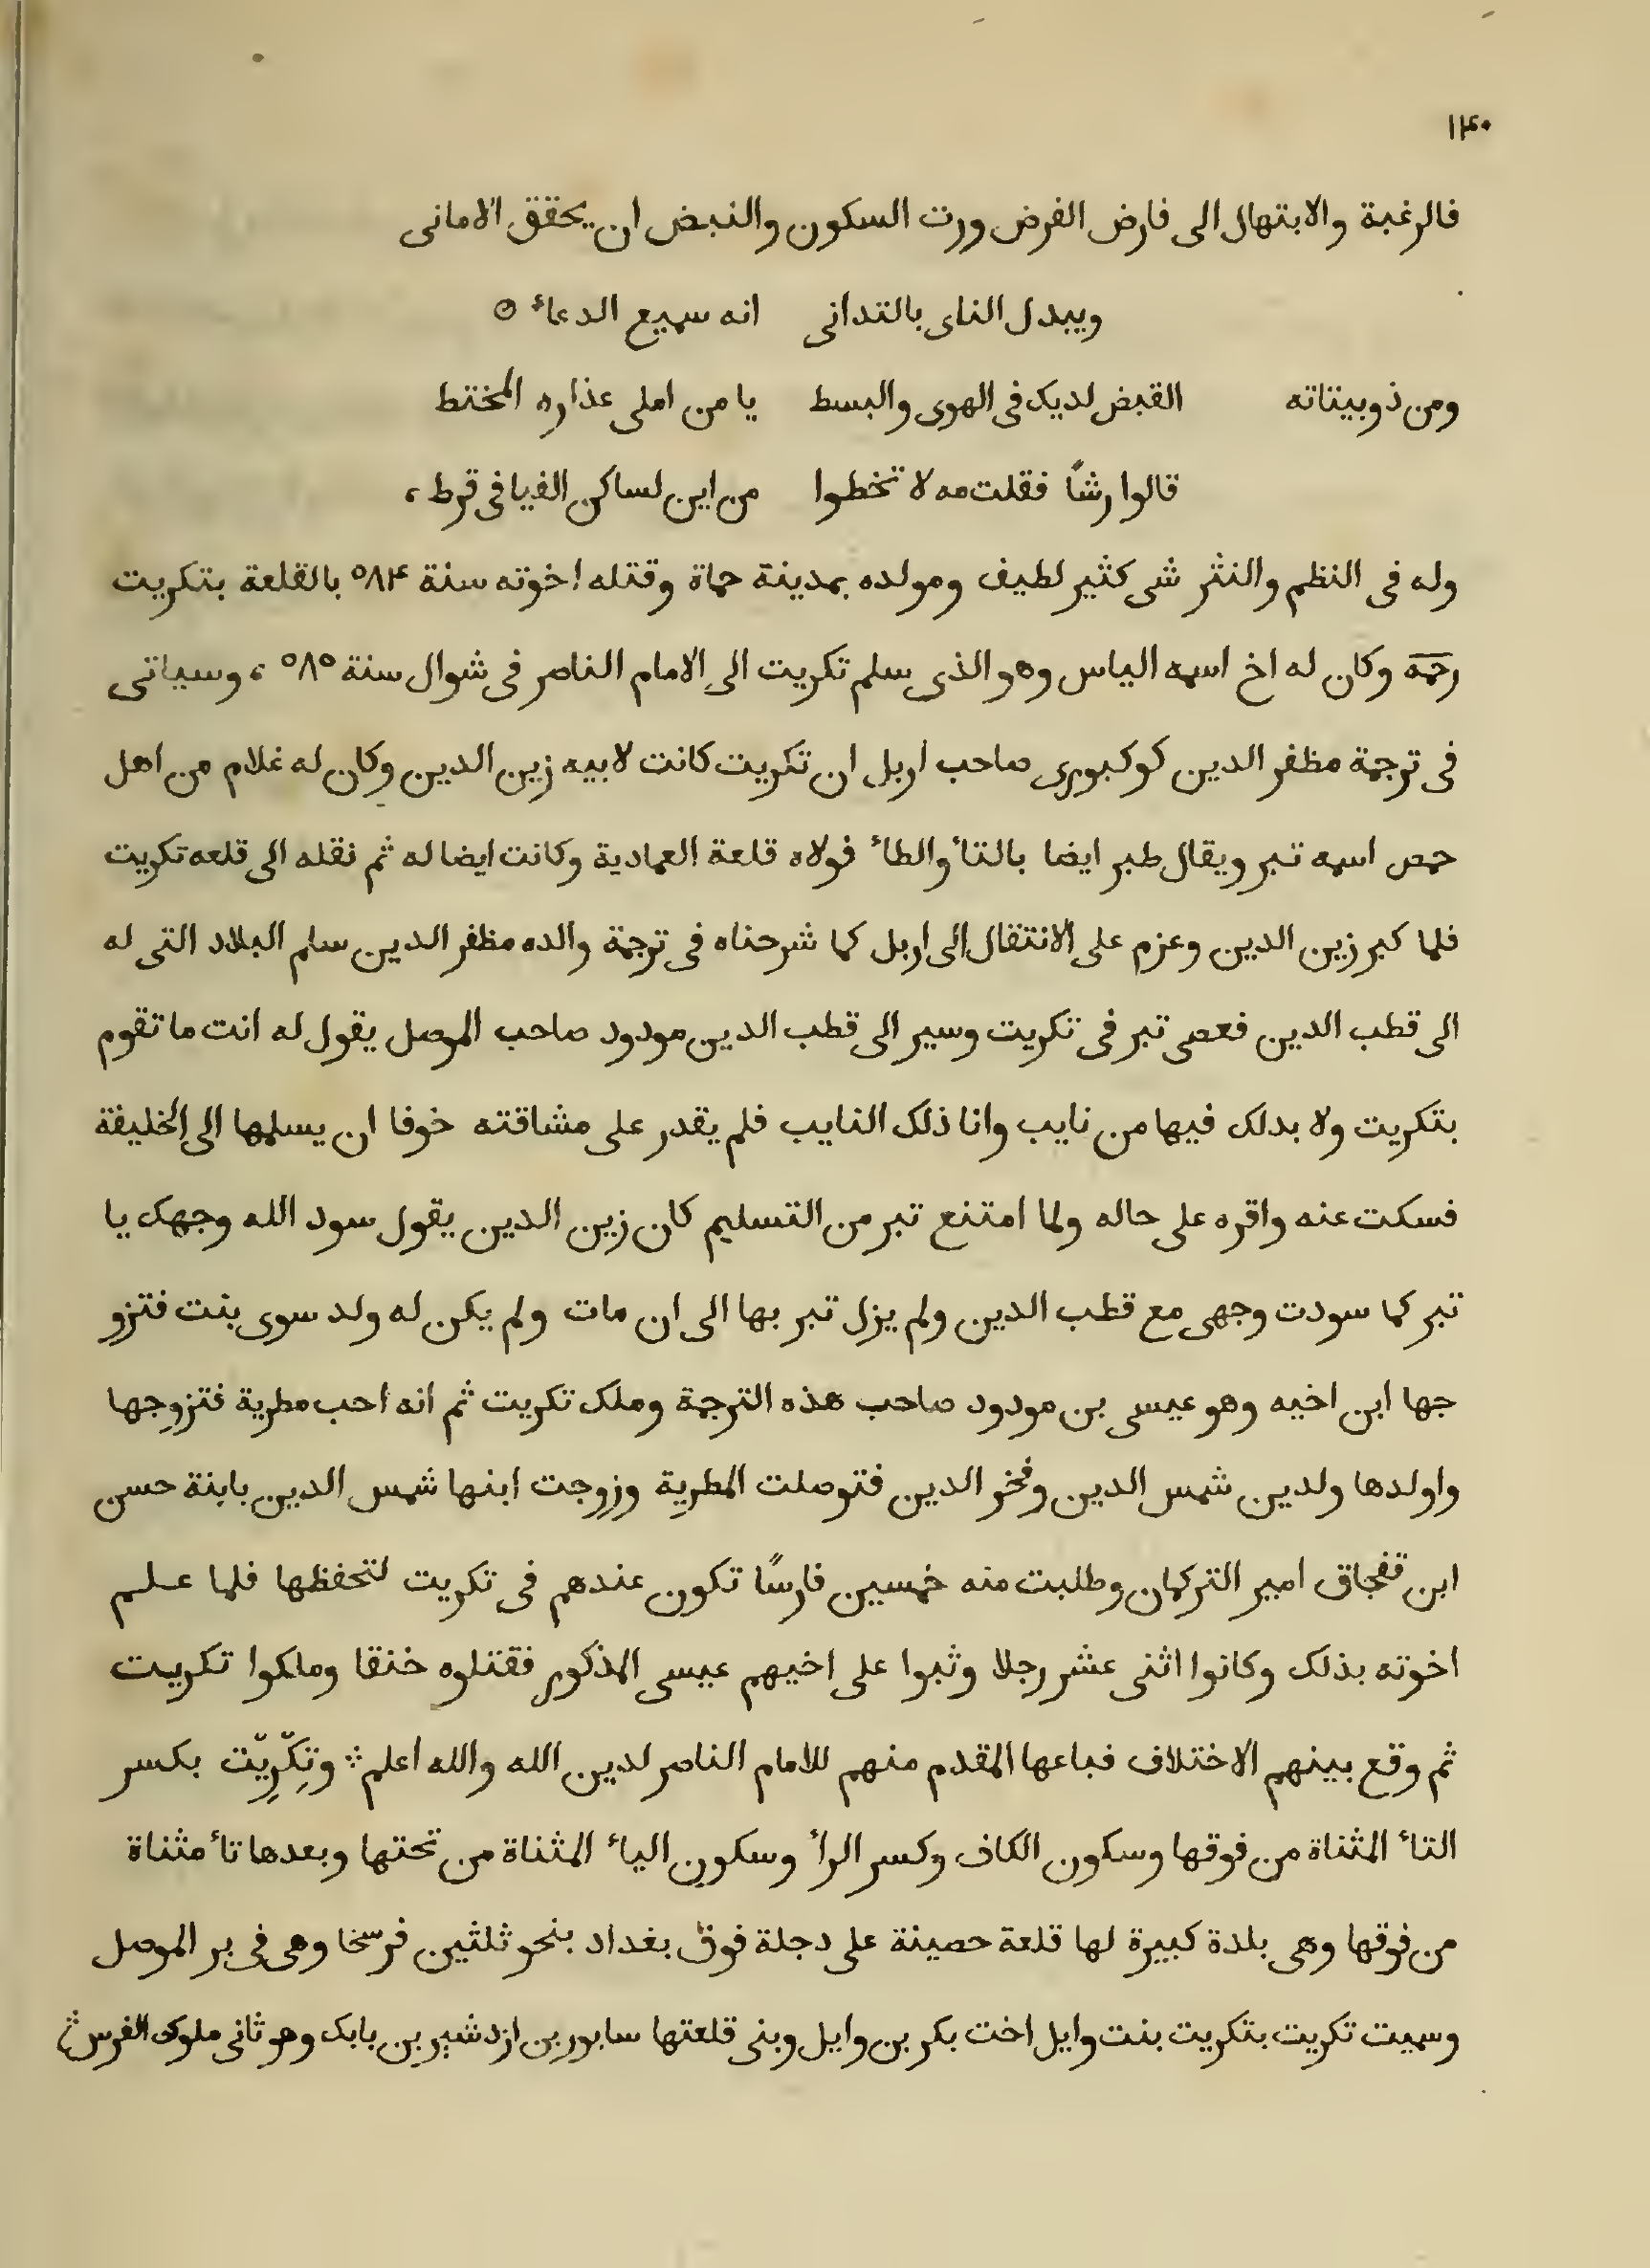 ١٣٠
فالرغبة والابتهال الى فارض الفرض ورت السكون والنبض ان يحقق الامانى
ويبدل الناى بالتدانى انه سميع الدعاء
ومن ذوبيتاته القبض لديك فى الهوى والبسط يا من املى عذاره المختط
قالوا رشأً فقلت مه لا تخطوا من اين لساكن الفيافى قرط ،
وله فى النظم والنثر شى كثير لطيف ومولده بمدينة حماة وقتله اخوته سنة ٥٨۴ بالقلعة بتكريت
رحمه وكان له اخ اسمه الياس وهو الذى سلم تكريت الى الامام الناصر فى شوال سنة ٥٨٥ ، وسياتى
فى ترجمة مظفر الدين كوكبورى صاحب اربل ان تكريت كانت لابيه زين الدين وكان له غلام من اهل
حمص اسمه تبر ويقال طبر ايضا بالتاء والطاء فولاه قلعة العمادية وكانت ايضا له ثم نقله الى قلعه تكريت
فلما كبر زين الدين وعزم على الانتقال الى اربل كما شرحناه فى ترجمة والده مظفر الدين سلم البلاد التى له
الى قطب الدين فعصى تبر فى تكريت وسير الى قطب الدين مودود صاحب الموصل يقول له انت ما تقوم
بتكريت ولا بدلك فيها من نايب وانا ذلك النايب فلم يقدر على مشاقته خوفا ان يسلمها الى الخليفة
فسكت عنه واقره على حاله ولما امتنع تبر من التسليم كان زين الدين يقول سود الله وجهك يا
تبر كما سودت وجهى مع قطب الدين ولم يزل تبر بها الى ان مات ولم يكن له ولد سوى بنت فتزو
جها ابن اخيه وهو عيسى بن مودود صاحب هذه الترجمة وملك تكريت ثم انه احب مطربة فتزوجها
واولدها ولدين شمس الدين وفخر الدين فتوصلت المطربة وزوجت ابنها شمس الدين بابنة حسن
ابن قفجاق امير التركمان وطلبت منه خمسين فارسًا تكون عندهم فى تكريت لتحفظها فلما علم
اخوته بذلك وكانوا اثنى عشر رجلا وثبوا على اخيهم عيسى المذكور فقتلوه خنقا وملكوا تكريت
ثم وقع بينهم الاختلاف فباعها المقدم منهم للامام الناصر لدين الله والله اعلم وتِكْرِيْت بكسر
التاء المثناة من فوقها وسكون الكاف وكسر الراء وسكون الياء المثناة من تحتها وبعدها تاء مثناة
من فوقها وهى بلدة كبيرة لها قلعة حصينة على دجلة فوق بغداد بنحو ثلثين فرسخا وهى فى بر الموصل
وسميت تكريت بتكريت بنت وايل اخت بكر بن وايل وبنى قلعتها سابور بن ازدشير بن بابك وهو ثانى ملوك الفرس